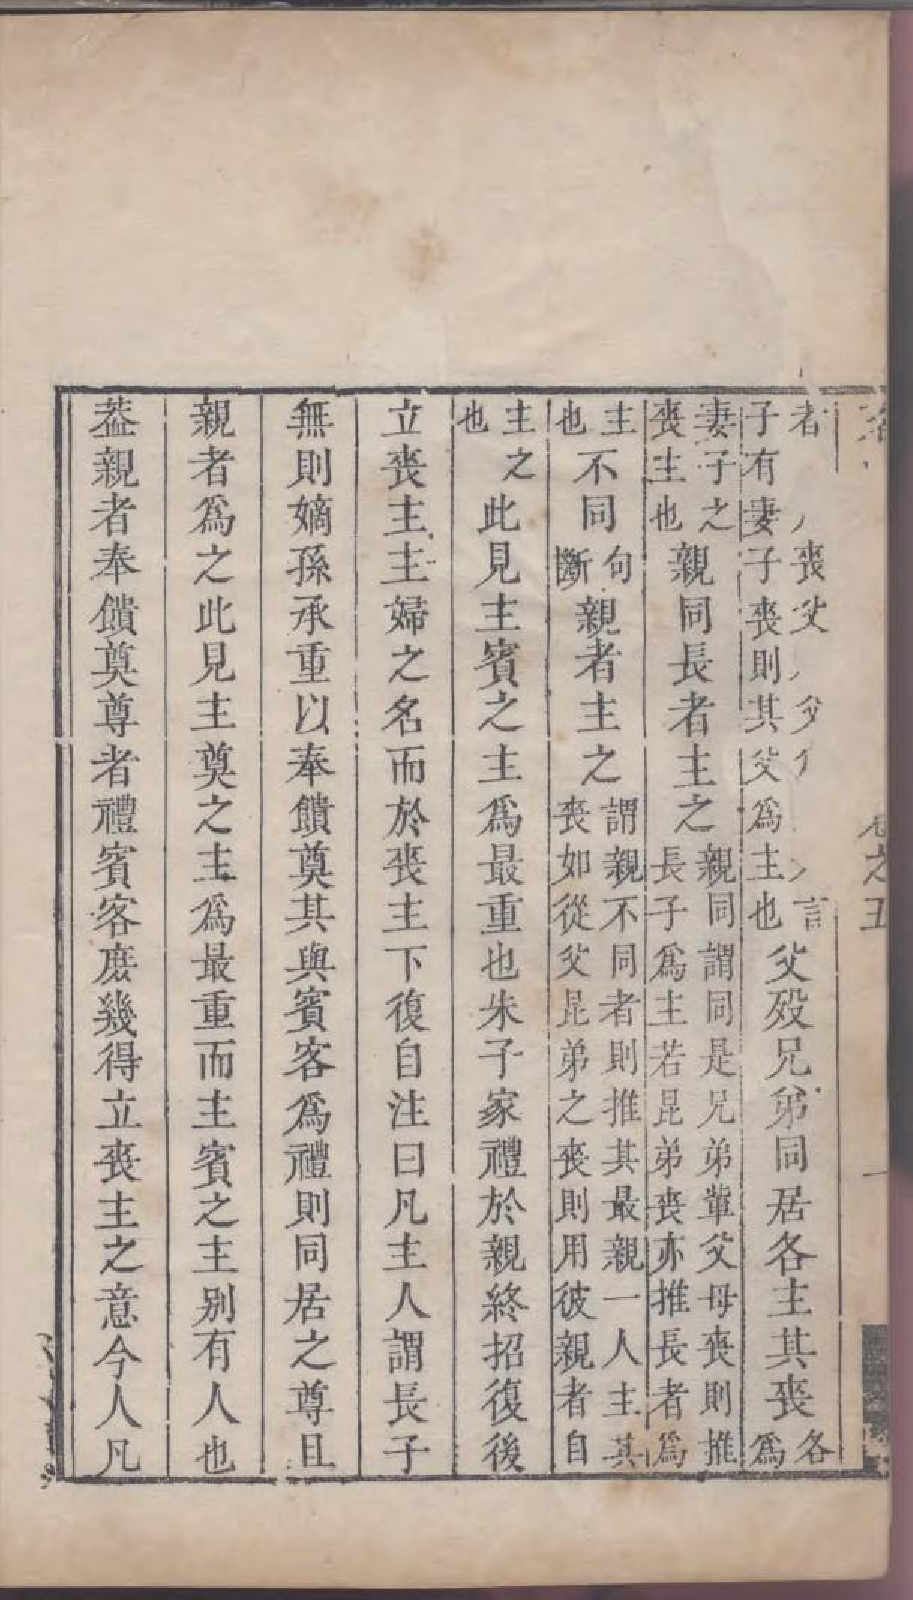 之五
一
者喪父子有妻子喪則其父爲主也父歿兄弟同居各主其喪各爲
妻子之喪主也親同長者主之親同謂同是兄弟輩父母喪則推長子爲主若昆弟喪亦推長者爲
主也不同句斷親者主之謂親不同者則推其最親一人主其喪如從父昆弟之喪則用彼親者自
主之也此見主賓之主爲最重也朱子家禮於親終招復後
立喪主主婦之名而於喪主下復自注曰凡主人謂長子
無則嫡孫承重以奉饋奠其與賓客爲禮則同居之尊且
親者爲之此見主奠之主爲最重而主賓之主別有人也
葢親者奉饋奠尊者禮賓客庶幾得立喪主之意今人凡